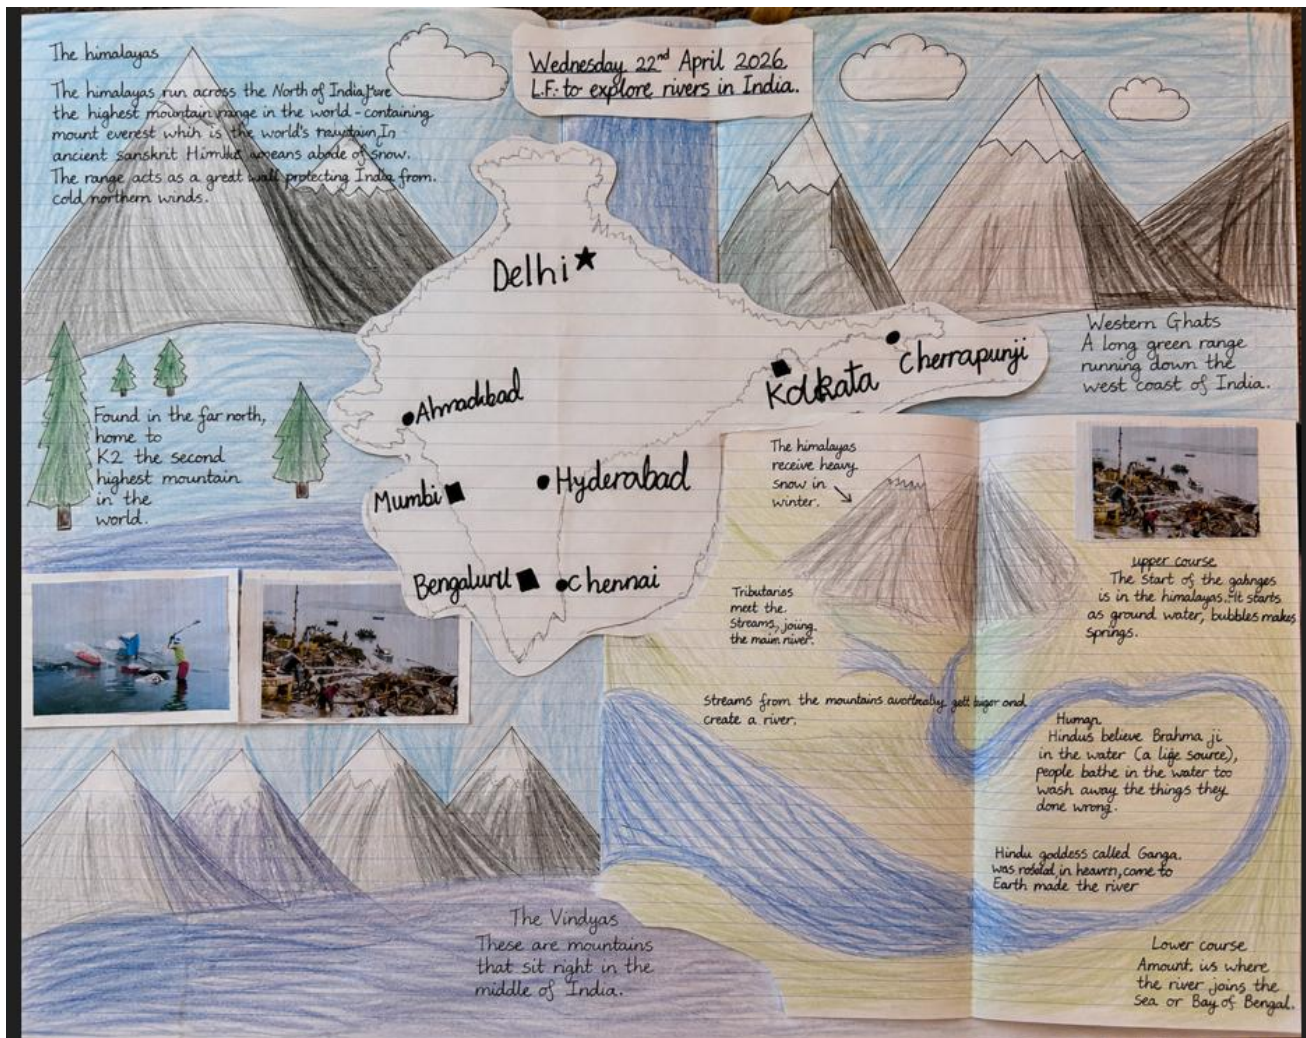 Wednesday 22nd April 2026
L.F. to explore rivers in India.
The himalayas
The himalayas run across the North of India
the highest mountain range in the world - containing
mount everest whih is the world's In
ancient sanskrit means abode of snow.
The range acts as a great wall protecting India from.
cold northern winds.
Found in the far north,
home to
K2 the second
highest mountain
in the
world.
Delhi
Ahmadbad
Mumbi
Hyderabad
Bengaluru
Chennai
Kolkata
Cherrapunji
Western Ghats
A long green range
running down the
west coast of India.
The himalayas
receive heavy
snow in
winter.
Tributaries
meet the
streams, joing
the main river.
Streams from the mountains gett biger and
create a river.
upper course
The start of the gabnges
is in the himalayas. It starts
as ground water, bubbles makes
springs.
Human
Hindus believe Brahma ji
in the water (a life source),
people bathe in the water too
wash away the things they
done wrong.
Hindu goddess called Ganga.
was in heaven, come to
Earth made the river
Lower course
Amount. is where
the river joins the
Sea or Bay of Bengal.
The Vindyas
These are mountains
that sit right in the
middle of India.